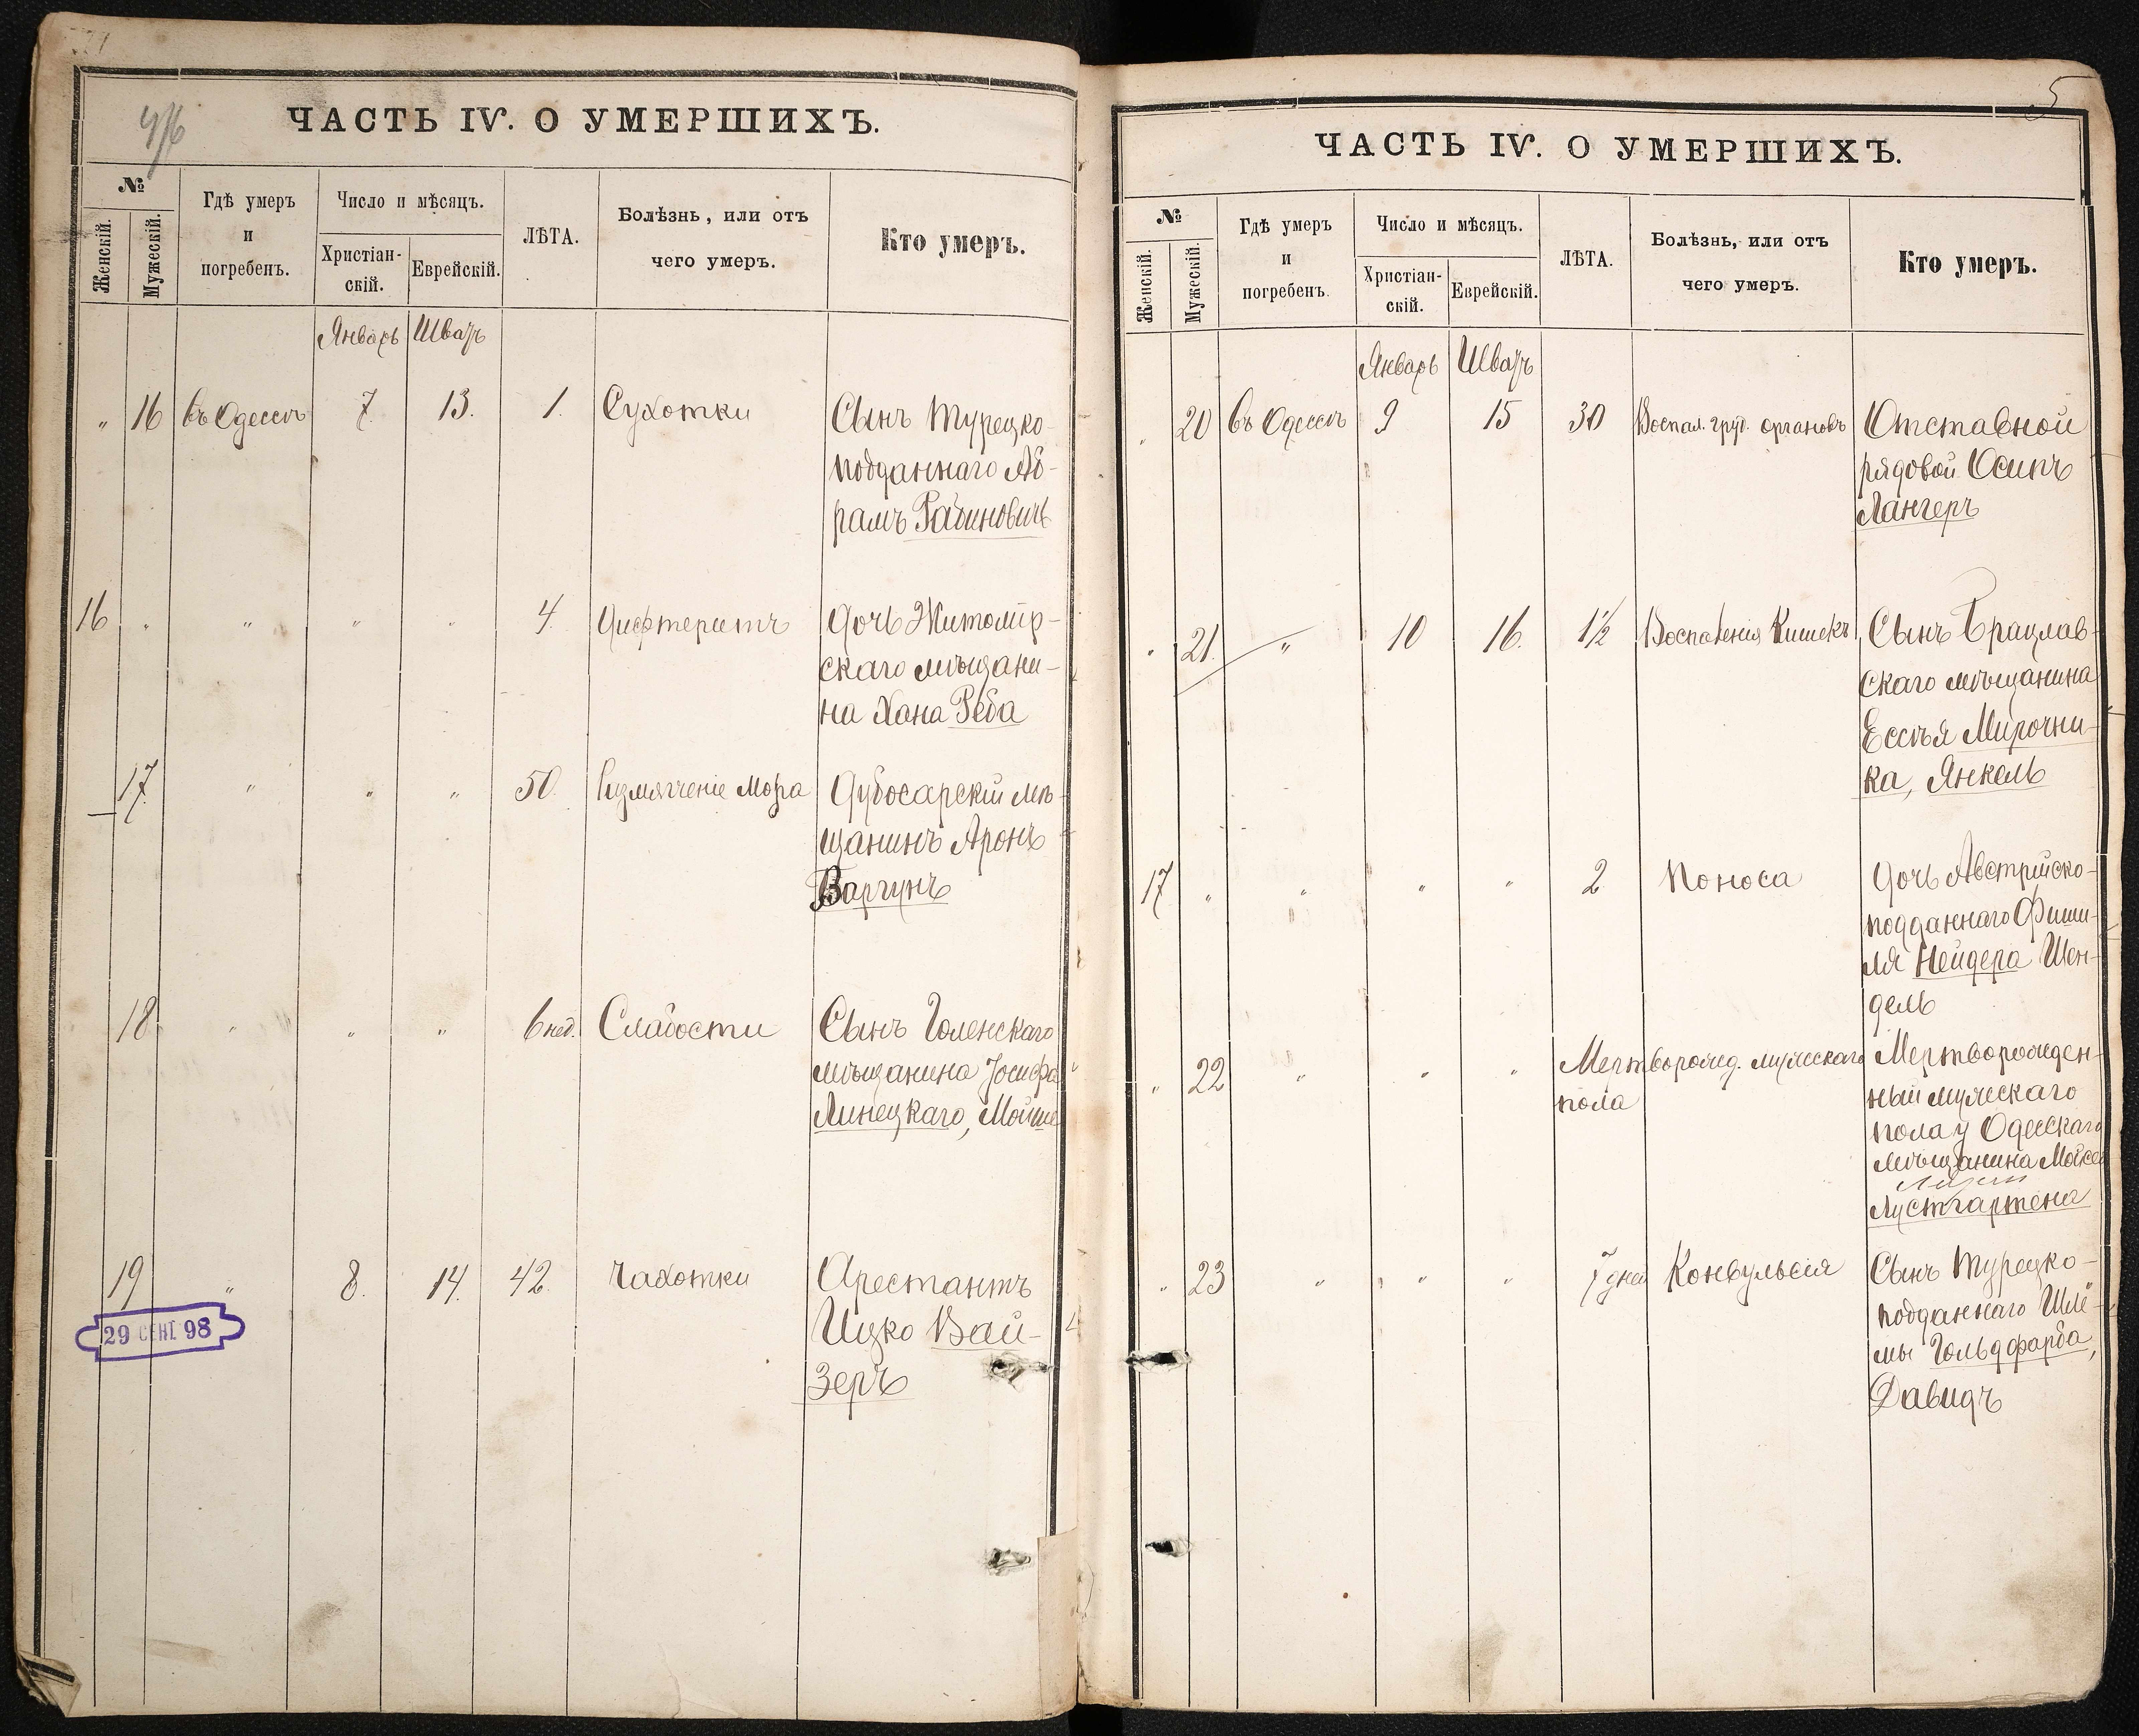 4/6
ЧАСТЬ IV. О УМЕРШИХЪ.
№
Женскій.
Мужескій.
Гдѣ умеръ
и
погребенъ.
Число и мѣсяцъ.
Христіан-
скій.
Еврейскій.
ЛѢТА.
Болѣзнь, или отъ
чего умеръ.
Кто умеръ.
Январь Шватъ
" 16 въ Одессѣ 7 13. 1. Сухотки Сынъ Турецко-
подданнаго Аб-
рамъ Рабиновичъ
16 " " " " 4. Дифтеритъ Дочь Житомір-
скаго мѣщани-
на Хана Реба
17. " " " 50. Размягченіе Мозга Дубосарскій мѣ-
щанинъ Аронъ
Варгунъ
18 " " " 6 нед. Слабости Сынъ Голенскаго
мѣщанина Іосифа
Линецкаго, Мойше
19 " 8. 14. 42. Чахотки Арестантъ
Ицко Вай-
зеръ
29 СЕНТ 98
5
ЧАСТЬ IV. О УМЕРШИХЪ.
№
Женскій.
Мужескій.
Гдѣ умеръ
и
погребенъ.
Число и мѣсяцъ.
Христіан-
скій.
Еврейскій.
ЛѢТА.
Болѣзнь, или отъ
чего умеръ.
Кто умеръ.
Январь Шватъ
" 20 въ Одессѣ 9 15 30 Воспал. груд. органовъ Отставной
рядовой Осипъ
Лангеръ
" 21. " 10 16. 1½ Воспаленія Кишекъ Сынъ Брацлав-
скаго мѣщанина
Ессѣя Мирочни-
ка, Янкель
17 " " " " 2 Поноса Дочь Австрійско-
подданнаго Фиши-
ля Нейдера Шен-
дель
" 22 " " " Мертворожд. мужескаго Мертворожден-
пола
ный мужескаго
пола у Одесскаго
мѣщанина Мойсея
Лустгартена
" 23 " " " 7 дней Конвульсія Сынъ Турецко-
подданнаго Шлё-
мы Гольдфарба,
Давидъ